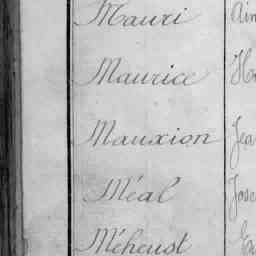 Mauri
Maurice
Mauxion Jea
Méal Jose
Méheust